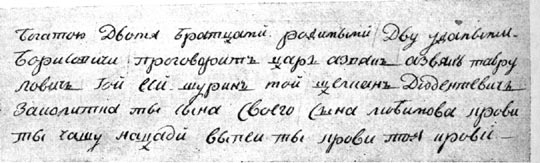 богатою Двомя братцами родимыми Дву удалыми
Борисовичи проговоритъ царъ азвякъ азвякъ тавру
ловичъ Гой еси шуринъ мой щелканъ Дюдентевичъ
Заколитка ты сына Своего Сына любимова крови
ты чашу нацади выпеи ты крови тоя крови —